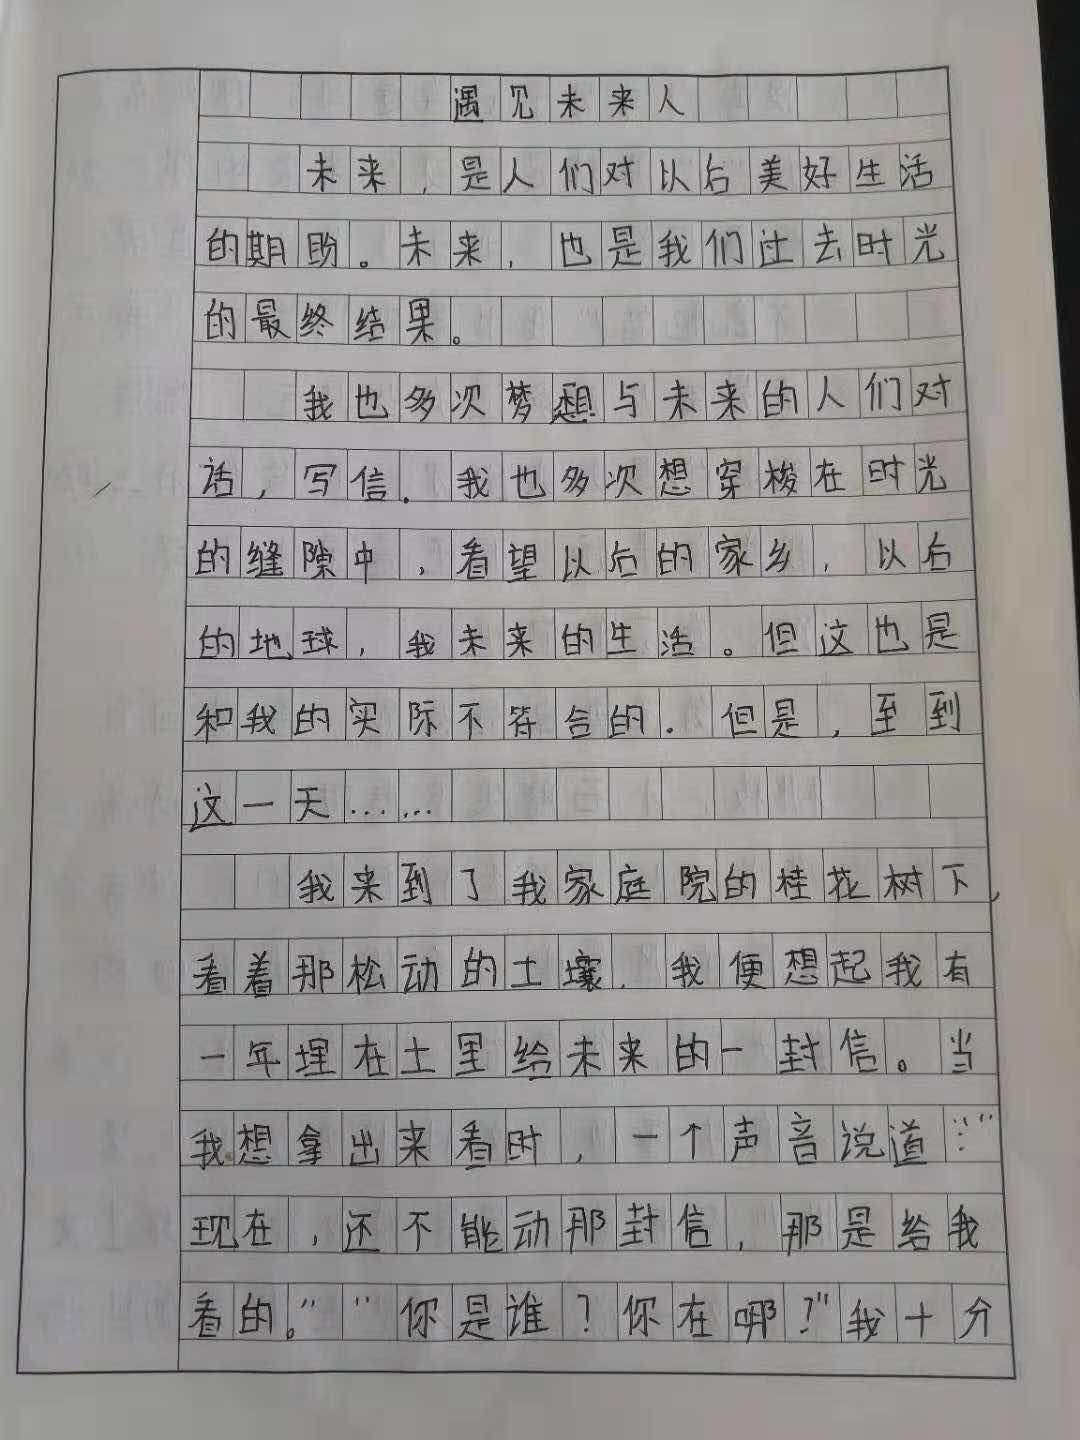 遇见未来人
未来，是人们对以后美好生活
的期盼。未来，也是我们过去时光
的最终结果。
我也多次梦想与未来的人们对
话，写信．我也多次想穿梭在时光
的缝隙中，看望以后的家乡，以后
的地球，我未来的生活。但这也是
和我的实际不符合的．但是，至到
这一天……
我来到了我家庭院的桂花树下，
看着那松动的土壤．我便想起我有
一年埋在土里给未来的一封信。当
我想拿出来看时，一个声音说道：“
现在，还不能动那封信，那是给我
看的。”“你是谁？你在哪？”我十分